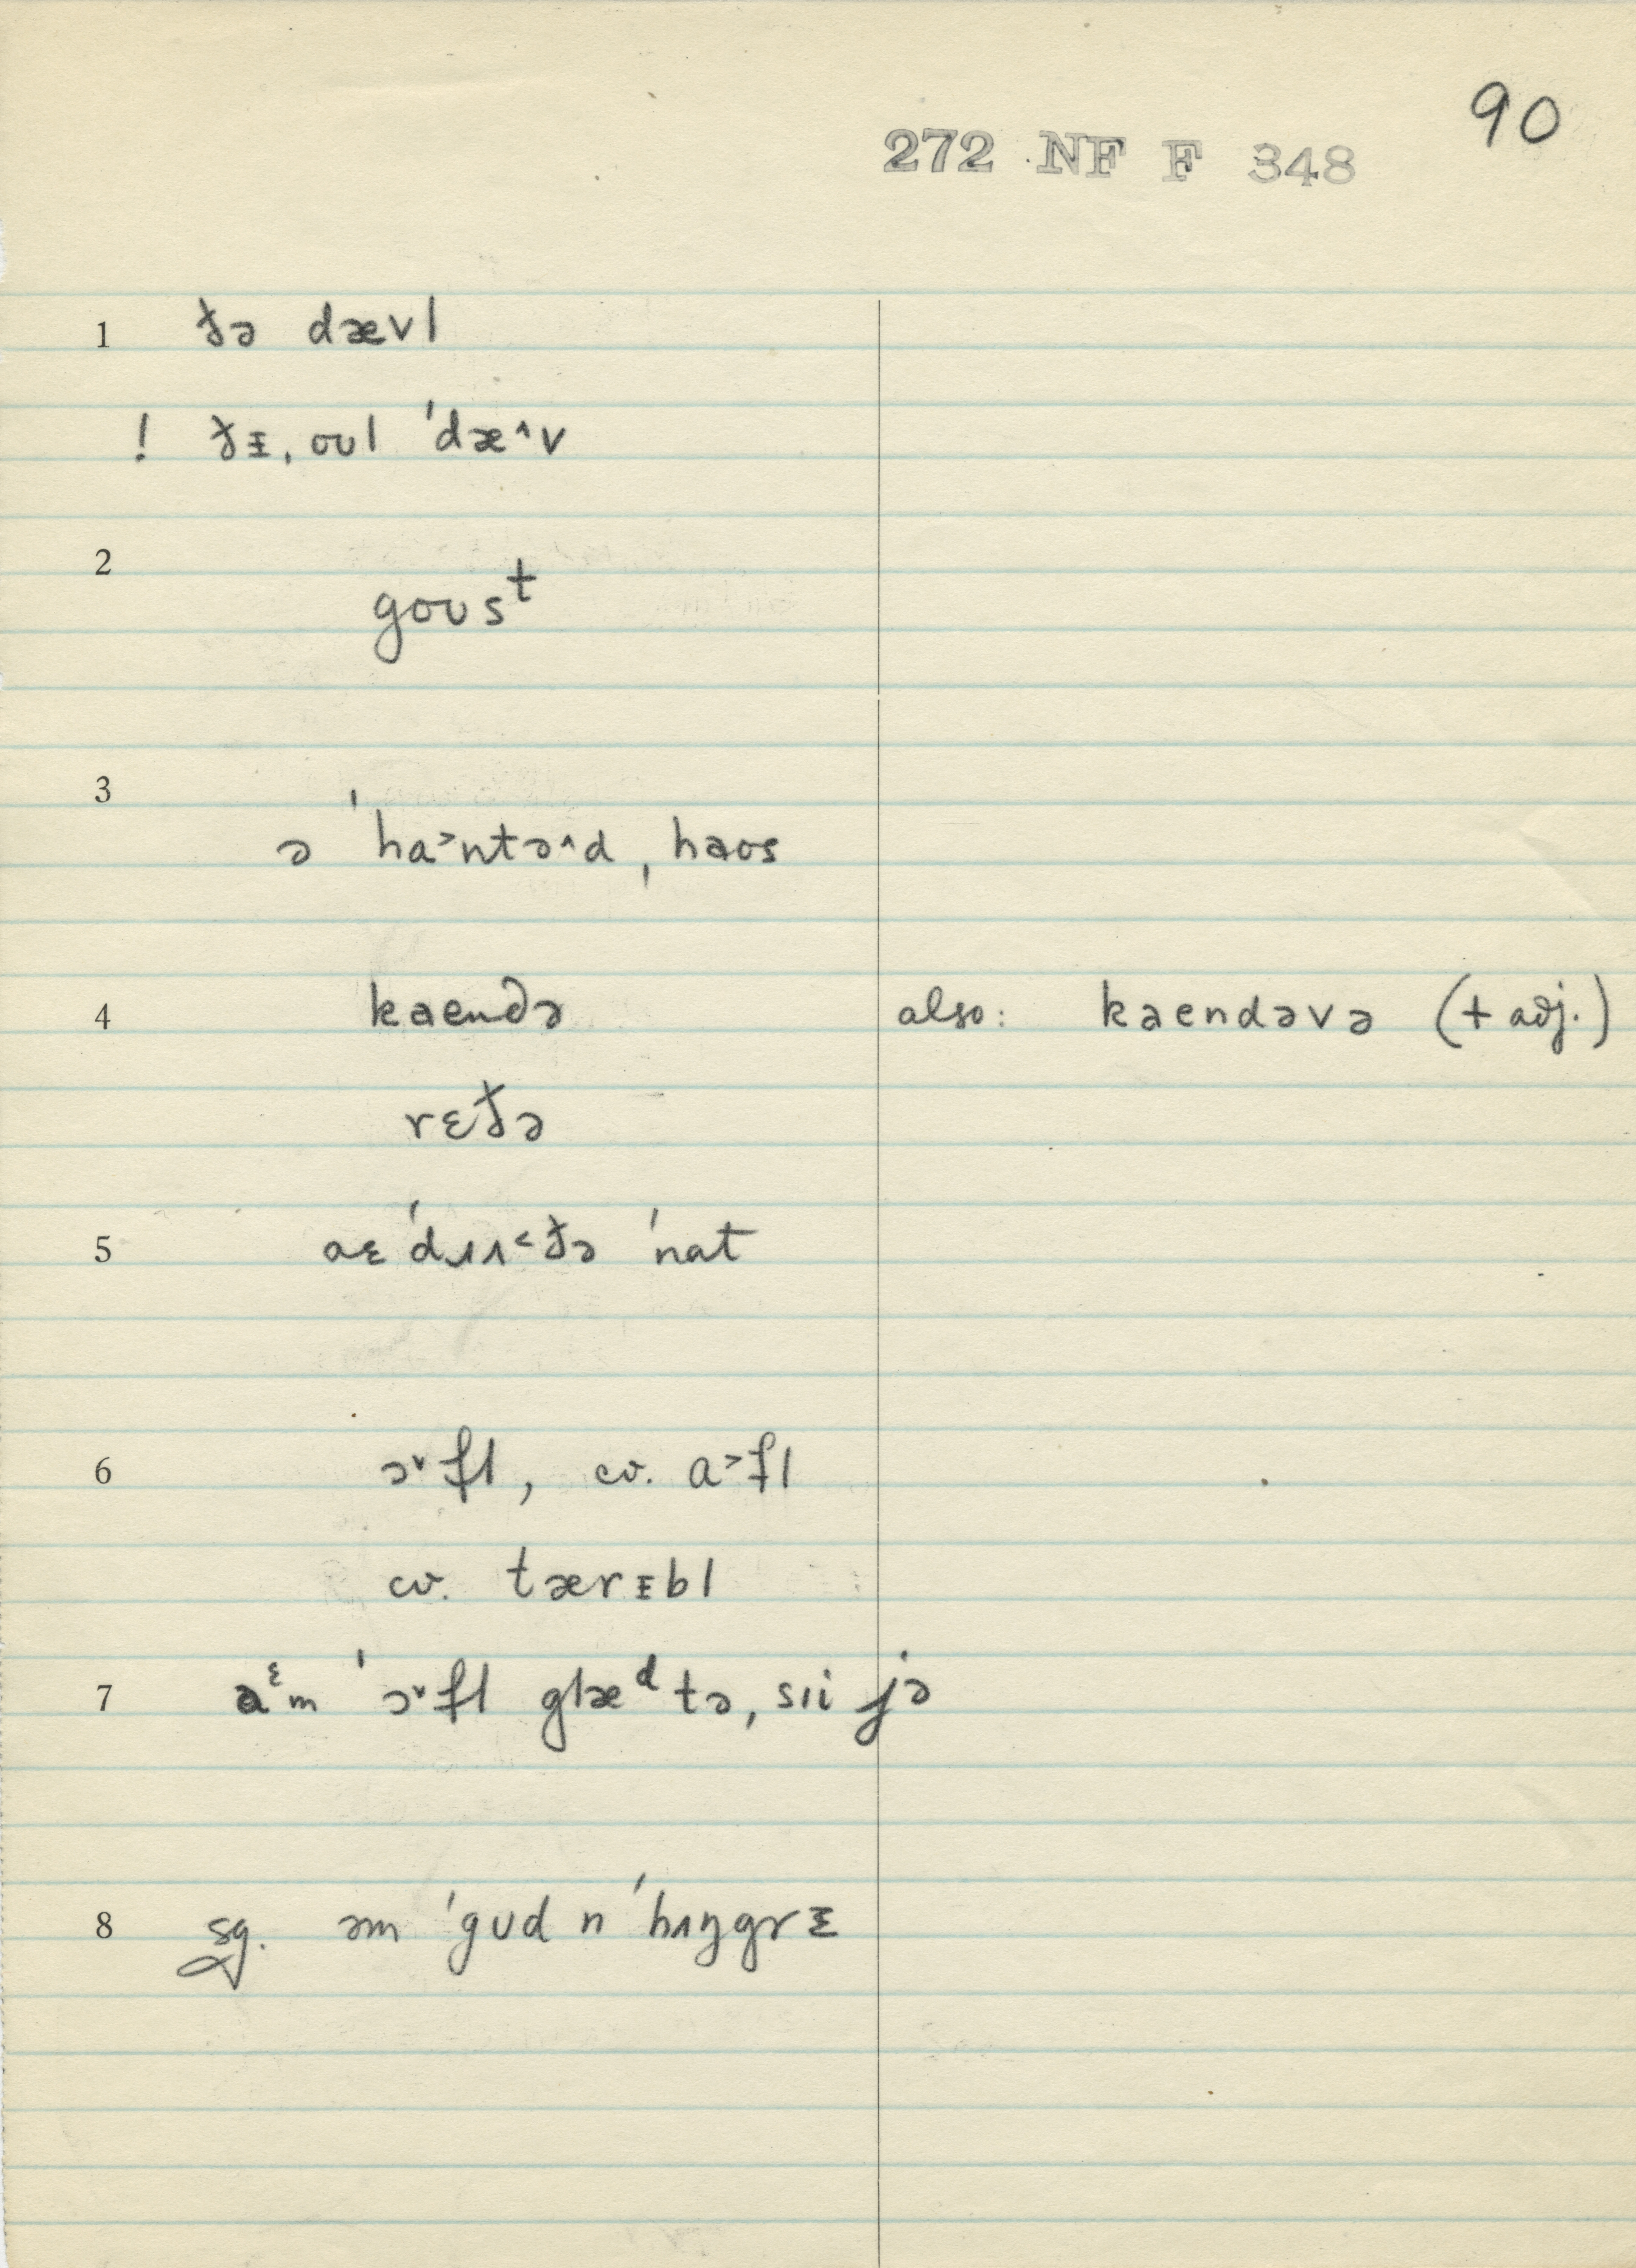 90
272 NF F 348
1 ðə dævl
! ðɪ ˌoʊl ˈdæ^v
2
goʊsᵗ
3
ə ˈha˃ntə^d ˌhaos
4 kaendə also: kaendəvə (+ adj.)
rɛðə
5 aɛ ˈdɹʌ˂ðə ˈnat
6 ɔ˅fl, cv. a˃fl
cv. tærɪbl
7 aᵋm ˈɔ˅fl glæᵈ tə ˌsɪi jə
8 sg. əm ˈgʊd n ˈhʌŋgrɪ